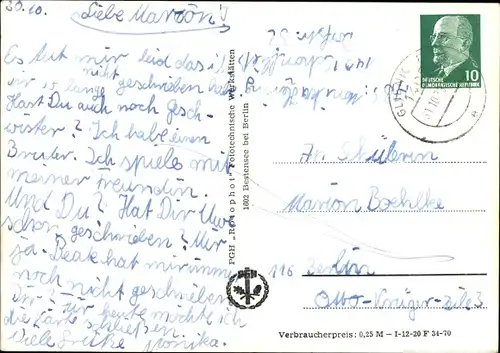 30.10. Liebe Marion!
Es tut mir leid das ich
dir so lange nicht geschrieben habe.
Hast Du auch noch Gesch-
wister? Ich habe einen
Bruder. Ich spiele mit
meiner Freundin.
Und Du? Hat Dir Uwe
schon geschrieben? Mir
ja. Beate hat mir immer
noch nicht geschrieben
Dir? Für heute möchte ich
die Karte schließen.
Viele Grüße Monika.
PGH „Rotophot" Fototechnische Werkstätten
1602 Bestensee bei Berlin
10
DEUTSCHE
DEMOKRATISCHE REPUBLIK
An Schülerin
Marion Boehlke
116 Berlin
Otto-Krüger-Zeile 3
Verbraucherpreis: 0,25 M – I-12-20 F 54-70